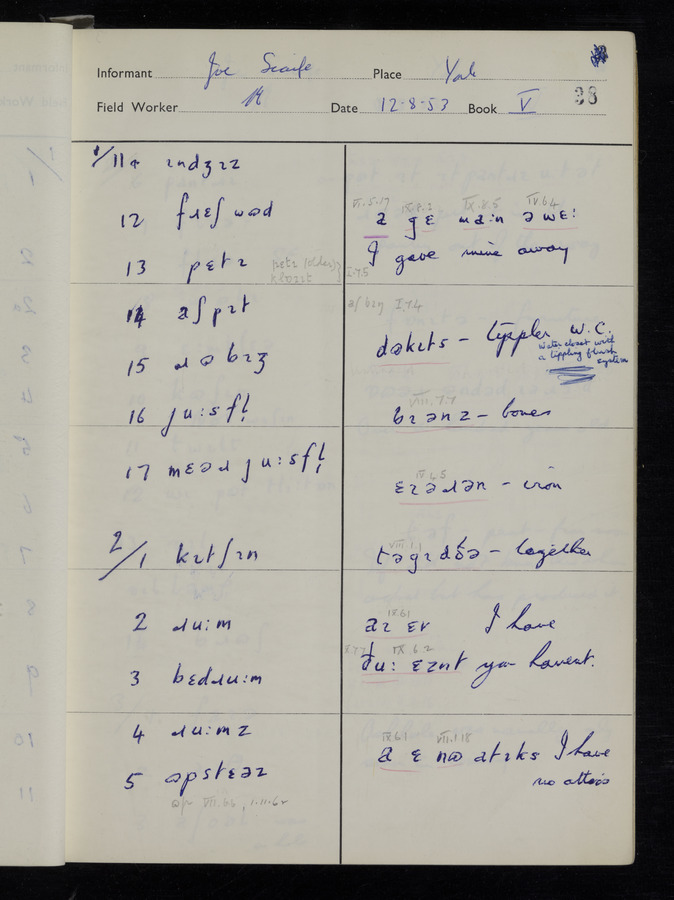 Informant Joe Scaife Place York
Field Worker Date 12-8-53 Book V 38
1/11a ɪndʒɪz
12 fɹɛʃ wəd
13 pɛtɪ
14 aʃpɪt
15 ɹəbɪʒ
16 ju:sfl̩
17 mɛəɹ ju:sfl̩
2/1 kɪtʃɪn
2 ɹu:m
3 bɛdɹu:m
4 ɹu:mz
5 əpstɛəz
VI.5.17 IX.8.2 IX.8.5 IV.6.4
a gɛ ma:n əwɛ:
I gave mine away
I.7.5
I.7.4
dəkɪts – tippler W.C.
water closet with
a tippling flush
system
VIII.7.7
bɪənz – bones
ɛɪəɹən – iron
VIII.1.1
təgɪðə – together
aɪ ɛv I have
IX.6.2
ju: ɛznt you havent.
IX.6.1 VII.1.18
a ɛ nə atɪks I have
no attics